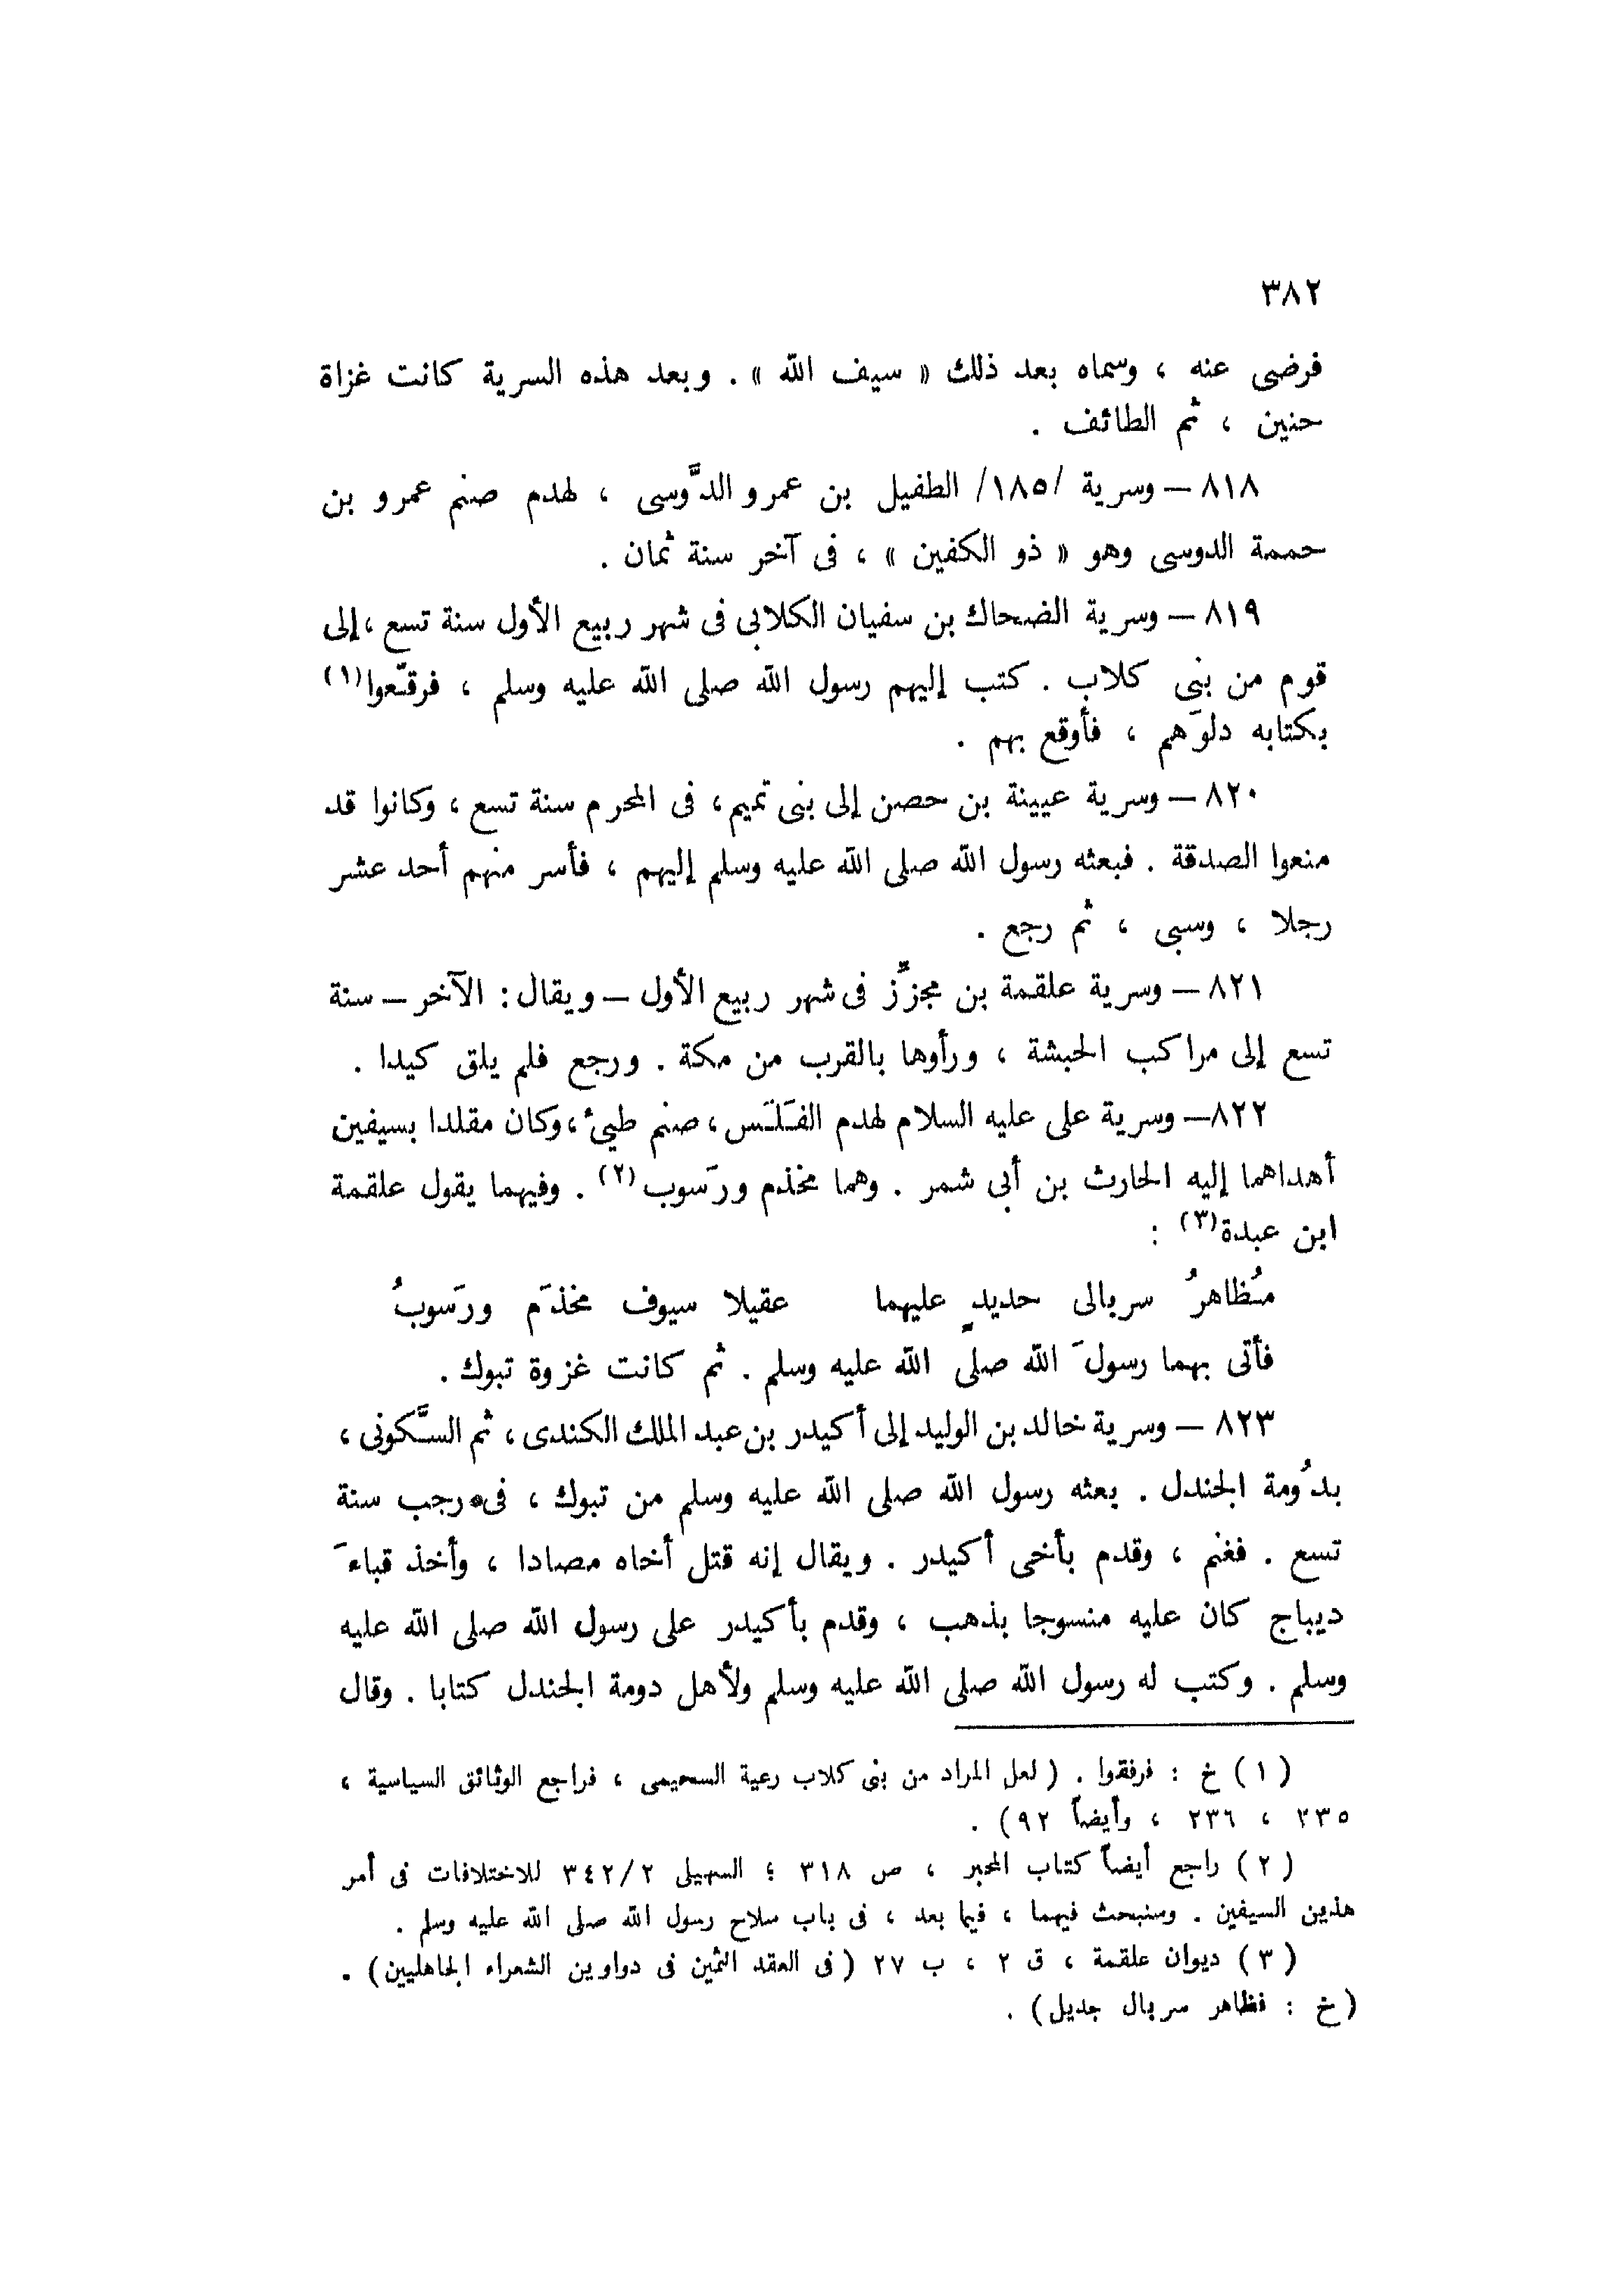 ٣٨٢
فرضى عنه ، وسماه بعد ذلك « سيف الله » . وبعد هذه السرية كانت غزاة
حنين ، ثم الطائف .
٨١٨ – وسرية /١٨٥/ الطفيل بن عمرو الدَّوسى ، لهدم صنم عمرو بن
حممة الدوسى وهو « ذو الكفين » ، فى آخر سنة ثمان .
٨١٩ – وسرية الضحاك بن سفيان الكلابى فى شهر ربيع الأول سنة تسع ، إلى
قوم من بنى كلاب . كتب إليهم رسول الله صلى الله عليه وسلم ، فرقّعوا(١)
بكتابه دلوَهم ، فأوقع بهم .
٨٢٠ – وسرية عيينة بن حصن إلى بنى تميم ، فى المحرم سنة تسع ، وكانوا قد
منعوا الصدقة . فبعثه رسول الله صلى الله عليه وسلم إليهم ، فأسر منهم أحد عشر
رجلا ، وسبى ، ثم رجع .
٨٢١ – وسرية علقمة بن مجزِّز فى شهر ربيع الأول – ويقال : الآخر – سنة
تسع إلى مراكب الحبشة ، ورأوها بالقرب من مكة . ورجع فلم يلق كيدا .
٨٢٢ – وسرية على عليه السلام لهدم الفَلَس ، صنم طيئ ، وكان مقلدا بسيفين
أهداهما إليه الحارث بن أبى شمر . وهما مخذم ورَسوب(٢) . وفيهما يقول علقمة
ابن عبدة(٣) :
مُظاهرُ سربالى حديدٍ عليهما    عقيلا سيوف مخذَم ورَسوبُ
فأتى بهما رسولَ الله صلى الله عليه وسلم . ثم كانت غزوة تبوك .
٨٢٣ – وسرية خالد بن الوليد إلى أكيدر بن عبد الملك الكندى ، ثم السَّكونى ،
بدُومة الجندل . بعثه رسول الله صلى الله عليه وسلم من تبوك ، فى رجب سنة
تسع . فغنم ، وقدم بأخى أكيدر . ويقال إنه قتل أخاه مصادا ، وأخذ قباءَ
ديباج كان عليه منسوجا بذهب ، وقدم بأكيدر على رسول الله صلى الله عليه
وسلم . وكتب له رسول الله صلى الله عليه وسلم ولأهل دومة الجندل كتابا . وقال
(١) خ : فرفقوا . (لعل المراد من بنى كلاب رعية السحيمى ، فراجع الوثائق السياسية ،
٢٣٥ ، ٢٣٦ ، وأيضاً ٩٢) .
(٢) راجع أيضاً كتاب المحبر ، ص ٣١٨ ؛ السهيلى ٣٤٢/٢ للاختلافات فى أمر
هذين السيفين . وسنبحث فيهما ، فيما بعد ، فى باب سلاح رسول الله صلى الله عليه وسلم .
(٣) ديوان علقمة ، ق ٢ ، ب ٢٧ (فى العقد الثمين فى دواوين الشعراء الجاهليين) .
(خ : فظاهر سربال جديل) .